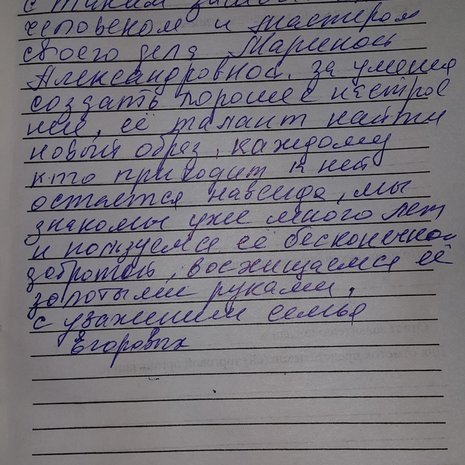 с таким
человеком и мастером
своего дела Мариной
Александровной. за умение
создать хорошее настрое
ние, её талант найти
новый образ, каждому
кто приходит к ней
остаётся навсегда, мы
знакомы уже много лет
и пользуемся её бесконечной
добротой, восхищаемся её
золотыми руками.
с уважением семья
Егоровых